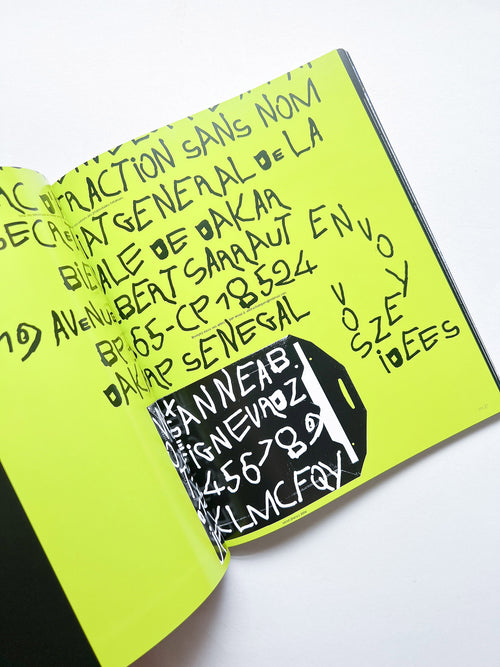 TRACTiON SANS NOM
SECRE IAT GENERAL DE LA
BiE ALE DE DAKAR
19) AVENUE BERT SARRAUT
BP 65-CP 18524
DAKAR SENEGAL
ENVOYEZ
VOS
iDEES
ANNEAB.
iGNEVRDZ
456789)
KLMCFQY